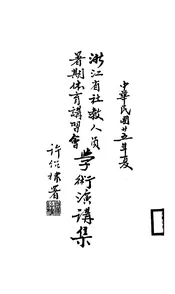 中華民國廿五年夏
浙江省社教人員
暑期体育講習會
學術演講集
許紹棣署